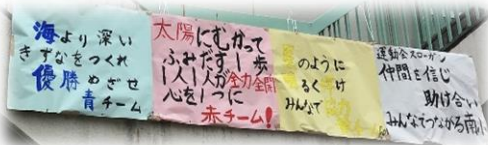 海より深い
きずなをつくれ
優勝めざせ
青チーム
太陽にむかって
ふみだす一歩
1人1人が全力全開
心を1つに
赤チーム!
のように
るく
け
みんなで
運動会スローガン
仲間を信じ
助け合い
みんなでつながる南